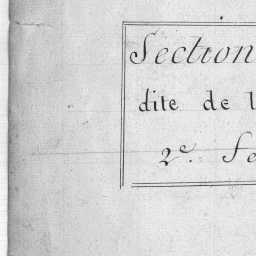 Section
dite de l
2e. Fe